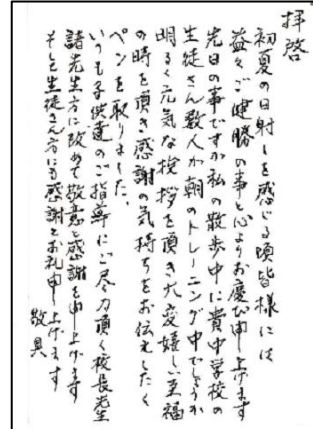 拝啓
初夏の日射しを感じる頃皆様には
益々ご健勝の事と心よりお慶び申し上げます
先日の事ですが私の散歩中に貴中学校の
生徒さん数人が朝のトレーニング中でしょうか
明るく元気な挨拶を頂き大変嬉しい至福
の時を頂き感謝の気持ちをお伝えしたく
ペンを取りました。
いつも子供達のご指導にご尽力頂く校長先生
諸先生方に改めて敬意と感謝を申し上げます
そして生徒さん方にも感謝とお礼申し上げます
敬具